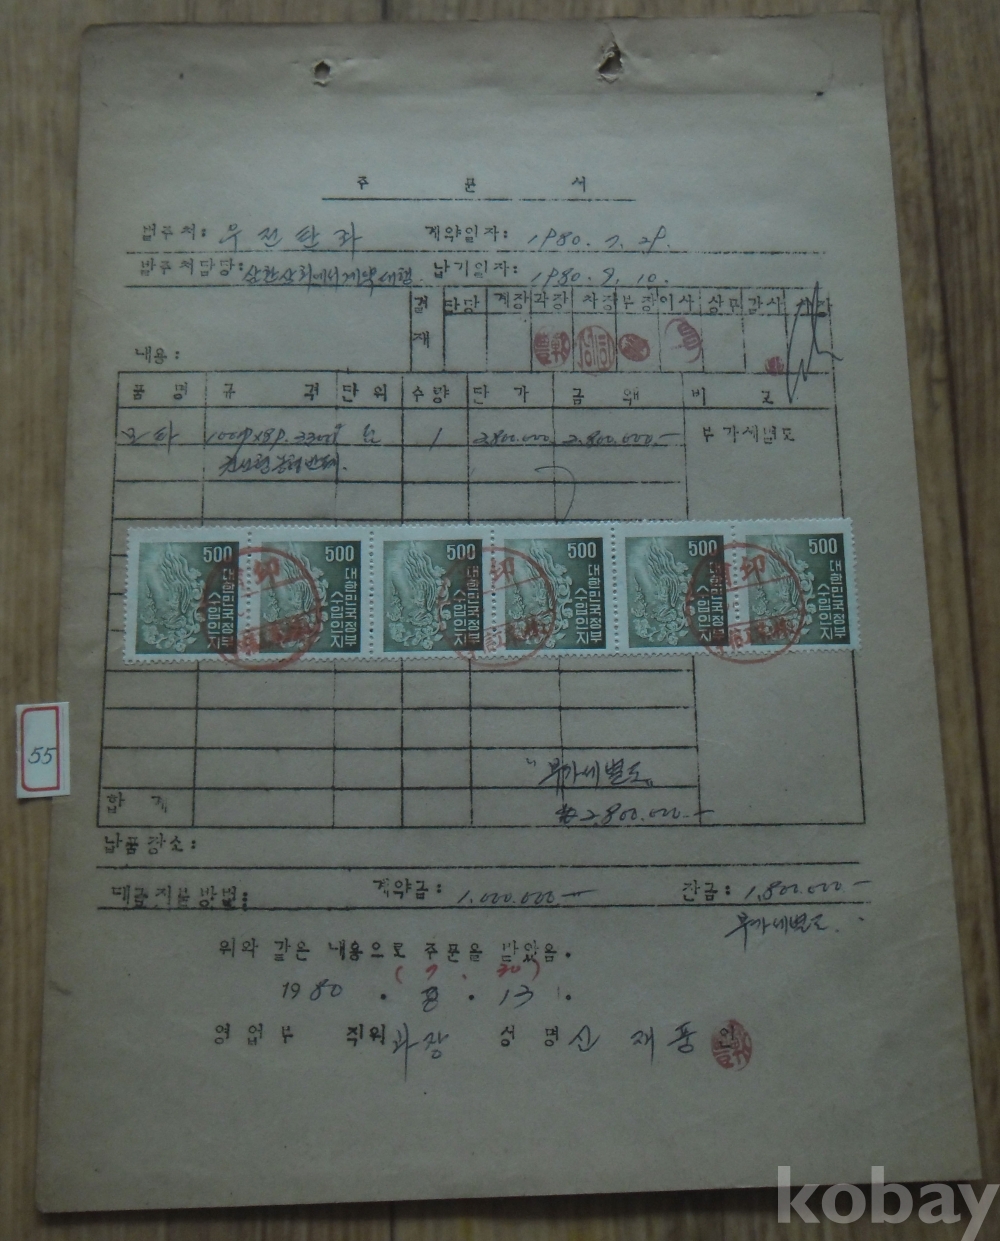 주 문 서
발주처: 우진탄좌 계약일자: 1980. 7. 29.
발주처담당: 삼한상회에서계약대행 납기일자: 1980. 9. 10.
결재 담당 계장 과장 차장 부장 이사 상무 감사 사장
내용:
품 명 규 격 단위 수량 단 가 금 액 비 고
1 2.800.000 2.800.000.- 부가세별도
500 500 500 500 500 500
대한민국정부 대한민국정부 대한민국정부 대한민국정부 대한민국정부 대한민국정부
수입인지 수입인지 수입인지 수입인지 수입인지 수입인지
55
"부가세별도"
합 계 ₩2.800.000.-
납품장소:
대금지불방법: 계약금: 1.000.000.- 잔금: 1.800.000-
부가세별도.
위와 같은 내용으로 주문을 받았음.
(7. 30)
1980 . 8 . 13 .
영업부 직위 과장 성명 신재풍 인
kobay